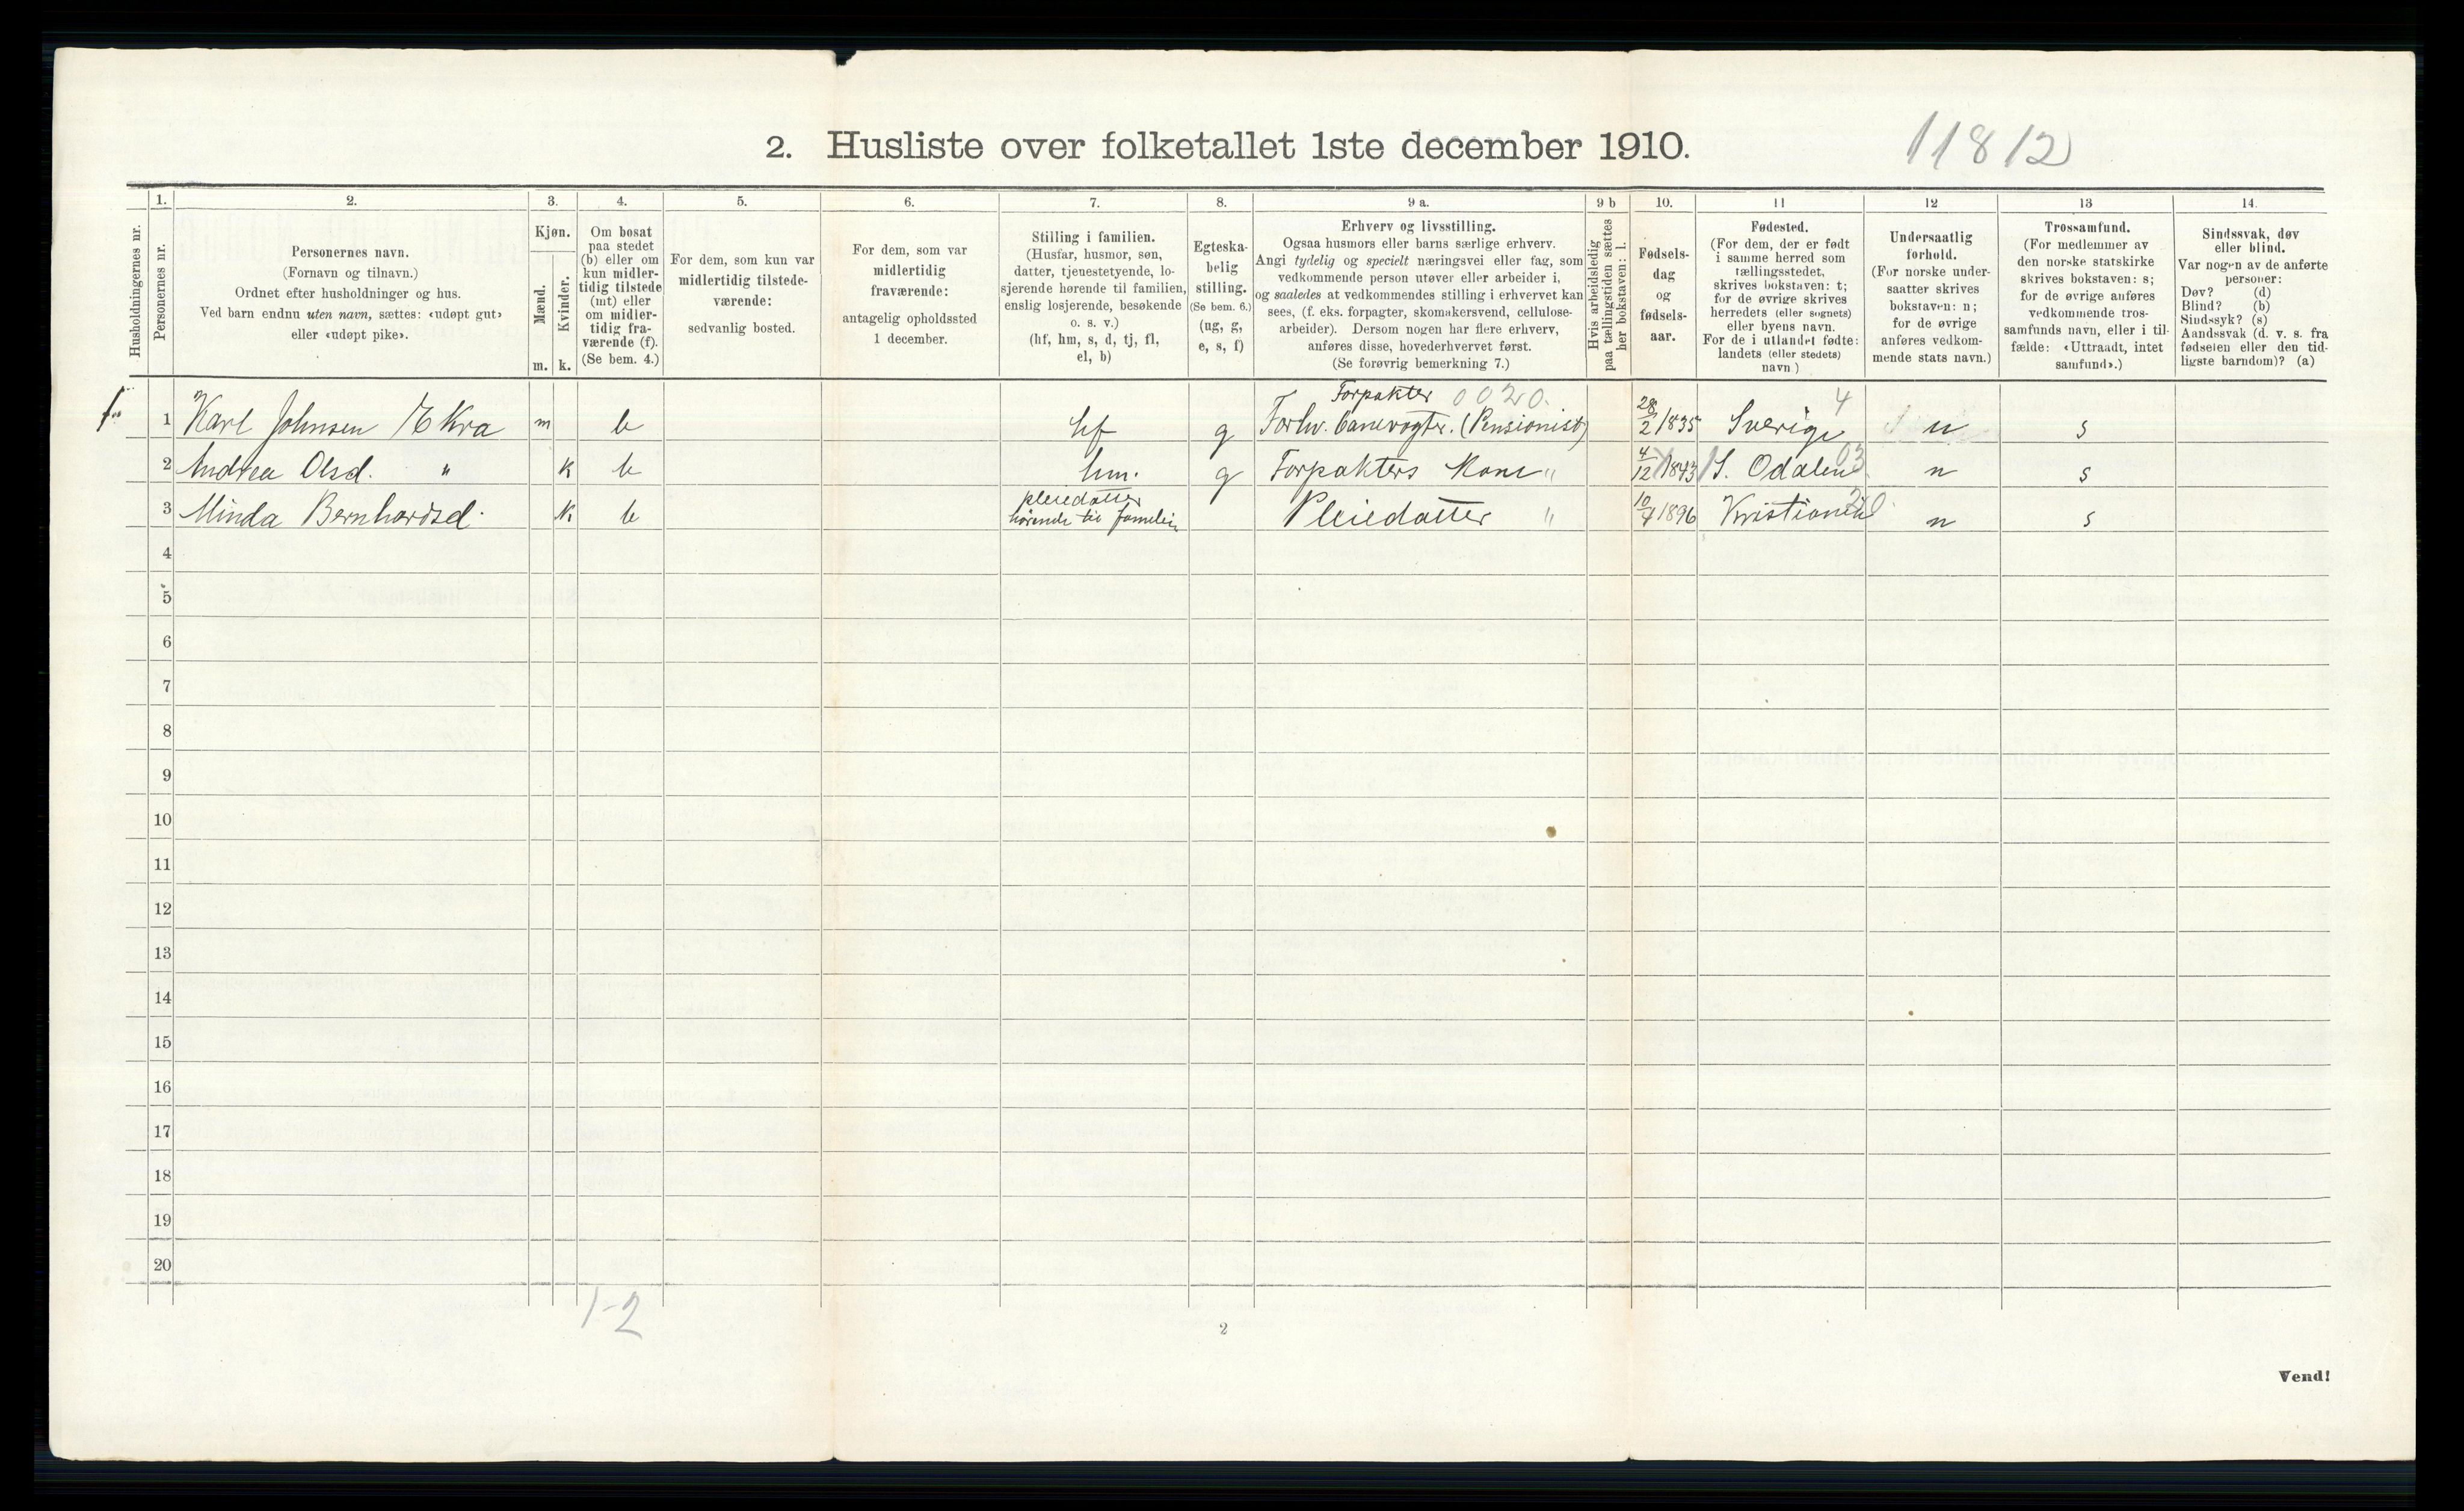 2. Husliste over folketallet 1ste december 1910.
11812
Husholdningernes nr.
1.
Personernes nr.
2.
Personernes navn.
(Fornavn og tilnavn.)
Ordnet efter husholdninger og hus.
Ved barn endnu uten navn, sættes: «udøpt gut»
eller «udøpt pike».
3.
Kjøn.
Mænd.
Kvinder.
m. k.
4.
Om bosat
paa stedet
(b) eller om
kun midler-
tidig tilstede
(mt) eller
om midler-
tidig fra-
værende (f).
(Se bem. 4.)
5.
For dem, som kun var
midlertidig tilstede-
værende:
sedvanlig bosted.
6.
For dem, som var
midlertidig
fraværende:
antagelig opholdssted
1 december.
7.
Stilling i familien.
(Husfar, husmor, søn,
datter, tjenestetyende, lo-
sjerende hørende til familien,
enslig losjerende, besøkende
o. s. v.)
(hf, hm, s, d, tj, fl,
el, b)
8.
Egteska-
belig
stilling.
(Se bem. 6.)
(ug, g,
e, s, f)
9 a.
Erhverv og livsstilling.
Ogsaa husmors eller barns særlige erhverv.
Angi tydelig og specielt næringsvei eller fag, som
vedkommende person utøver eller arbeider i,
og saaledes at vedkommendes stilling i erhvervet kan
sees, (f. eks. forpagter, skomakersvend, cellulose-
arbeider). Dersom nogen har flere erhverv,
anføres disse, hovederhvervet først.
(Se forøvrig bemerkning 7.)
9 b
Hvis arbeidsledig
paa tællingstiden sættes
her bokstaven: l.
10.
Fødsels-
dag
og
fødsels-
aar.
11
Fødested.
(For dem, der er født
i samme herred som
tællingsstedet,
skrives bokstaven: t;
for de øvrige skrives
herredets (eller sognets)
eller byens navn.
For de i utlandet fødte:
landets (eller stedets)
navn.)
12
Undersaatlig
forhold.
(For norske under-
saatter skrives
bokstaven: n;
for de øvrige
anføres vedkom-
mende stats navn.)
13
Trossamfund.
(For medlemmer av
den norske statskirke
skrives bokstaven: s;
for de øvrige anføres
vedkommende tros-
samfunds navn, eller i til-
fælde: «Uttraadt, intet
samfund».)
14.
Sindssvak, døv
eller blind.
Var nogen av de anførte
personer:
Døv? (d)
Blind? (b)
Sindssyk? (s)
Aandssvak (d. v. s. fra
fødselen eller den tid-
ligste barndom)? (a)
Forpakter 0020.
1 Karl Johnsen Ekra m b hf g Forhv. banevogter. (Pensionist) 28/2 1835 Sverige 4 n s
2 Andrea Olsd. " k b hm. g Forpakters Kone " 4/12 1843 S. Odalen 03 n s
3 Minda Bernhardsd. k b pleiedatter
hørende til familien Pleiedatter " 10/4 1896 Kristiania 20. n s
4
5
6
7
8
9
10
11
12
13
14
15
16
17
18
19
20
1-2
2
Vend!